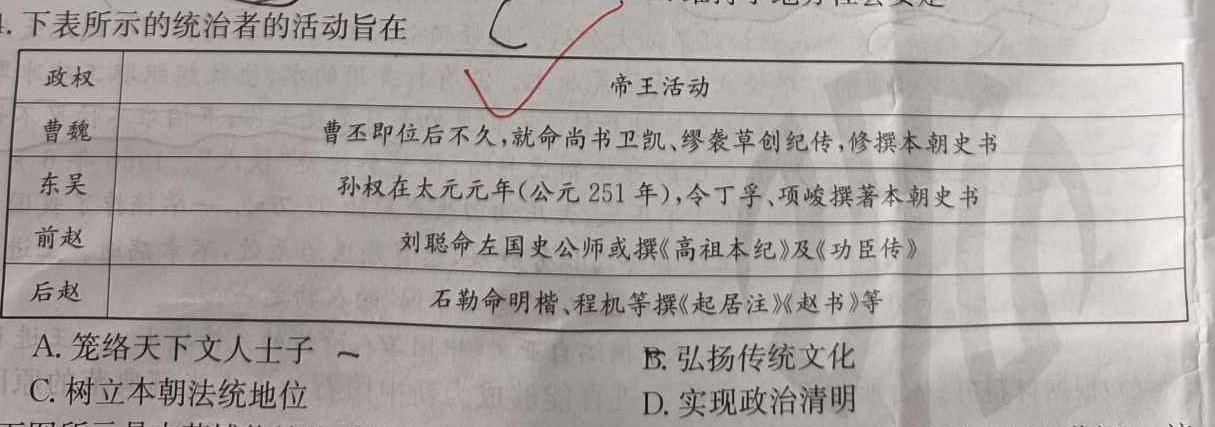 . 下表所示的统治者的活动旨在
政权 帝王活动
曹魏 曹丕即位后不久,就命尚书卫凯、缪袭草创纪传,修撰本朝史书
东吴 孙权在太元元年(公元 251 年),令丁孚、项峻撰著本朝史书
前赵 刘聪命左国史公师或撰《高祖本纪》及《功臣传》
后赵 石勒命明楷、程机等撰《起居注》《赵书》等
A. 笼络天下文人士子 B. 弘扬传统文化
C. 树立本朝法统地位 D. 实现政治清明